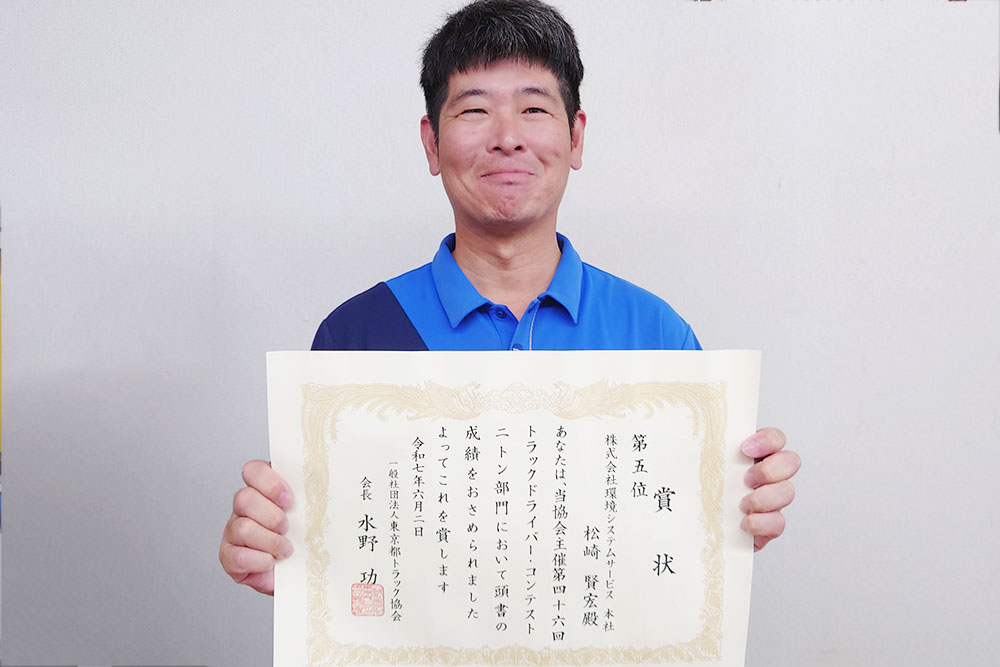 賞状
第五位
株式会社環境システムサービス 本社
松崎 賢宏殿
あなたは、当協会主催第四十六回
トラックドライバー・コンテスト
二トン部門において頭書の
成績をおさめられました
よってこれを賞します
令和七年六月二日
一般社団法人東京都トラック協会
会長 水野 功